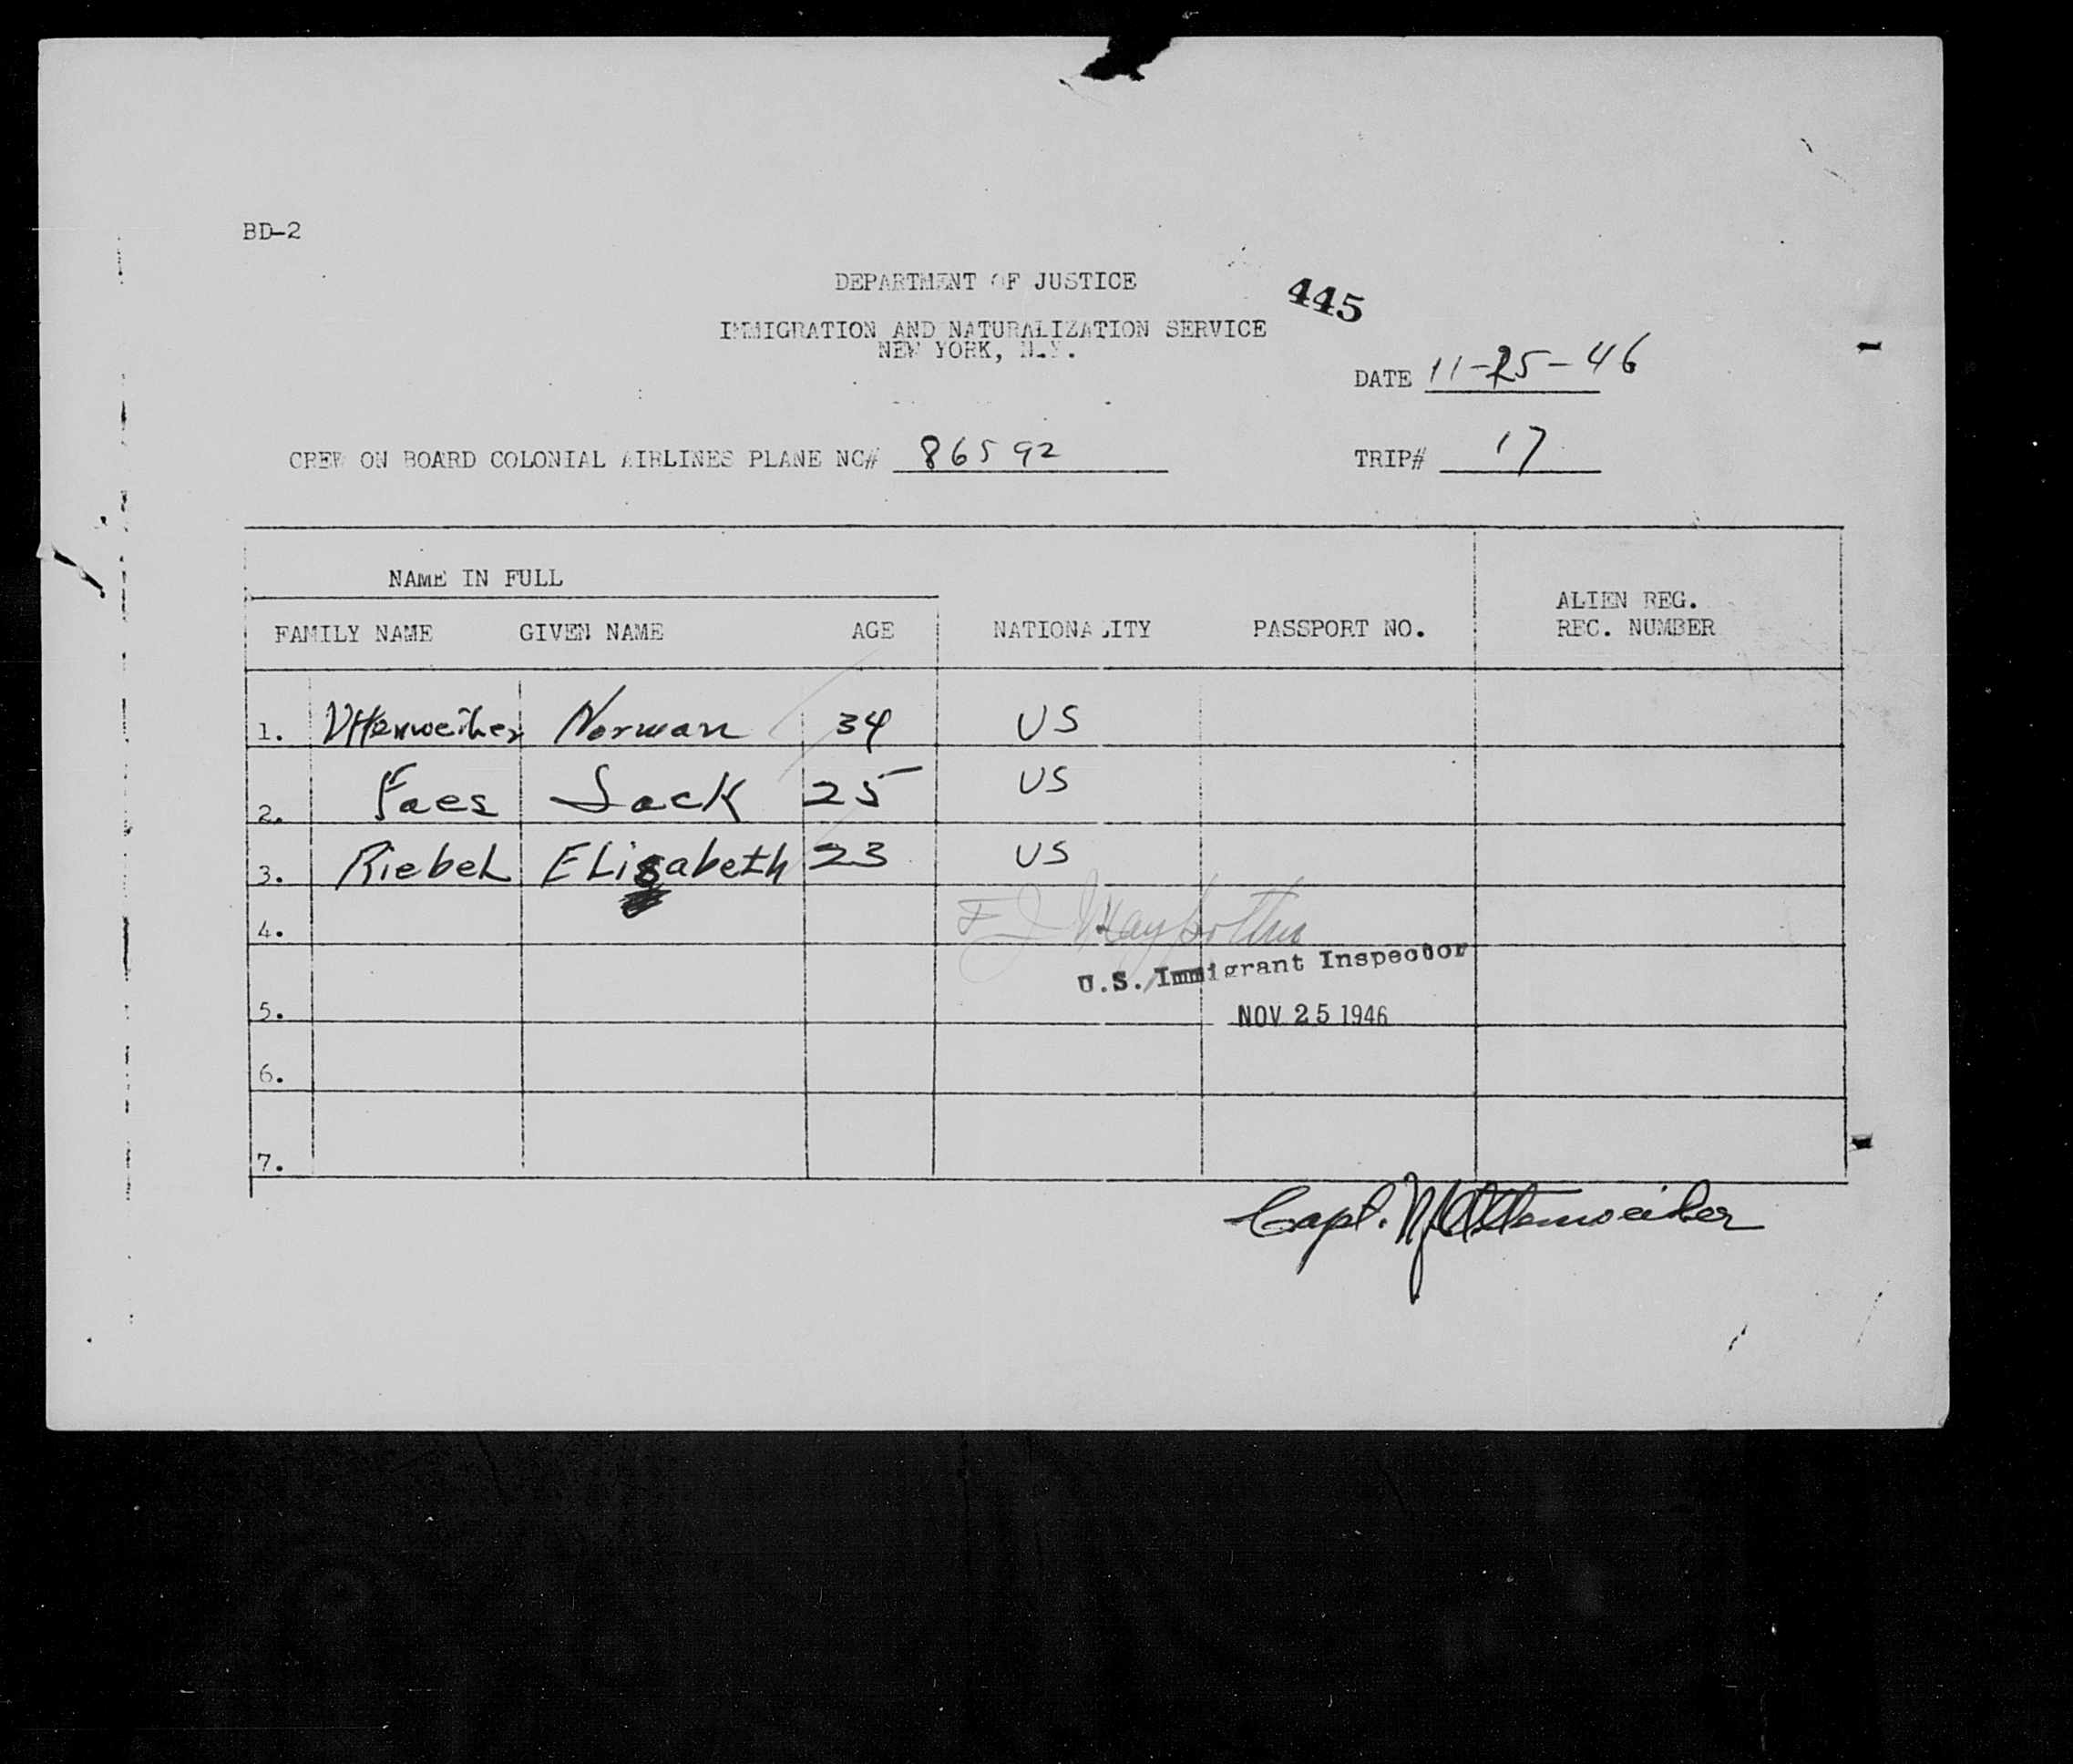 BD-2
DEPARTMENT OF JUSTICE
445
IMMIGRATION AND NATURALIZATION SERVICE
NEW YORK, N.Y.
DATE 11-25-46
CREW ON BOARD COLONIAL AIRLINES PLANE NC# 86592 TRIP# 17
NAME IN FULL
FAMILY NAME GIVEN NAME AGE NATIONALITY PASSPORT NO. ALIEN REG. REC. NUMBER
1. Uttenweiher Norman 34 US
2. Faes Jack 25 US
3. Riebel Elisabeth 23 US
4. F J
5. U.S. Immigrant Inspector
NOV 25 1946
6.
7.
Capt. N Uttenweiher